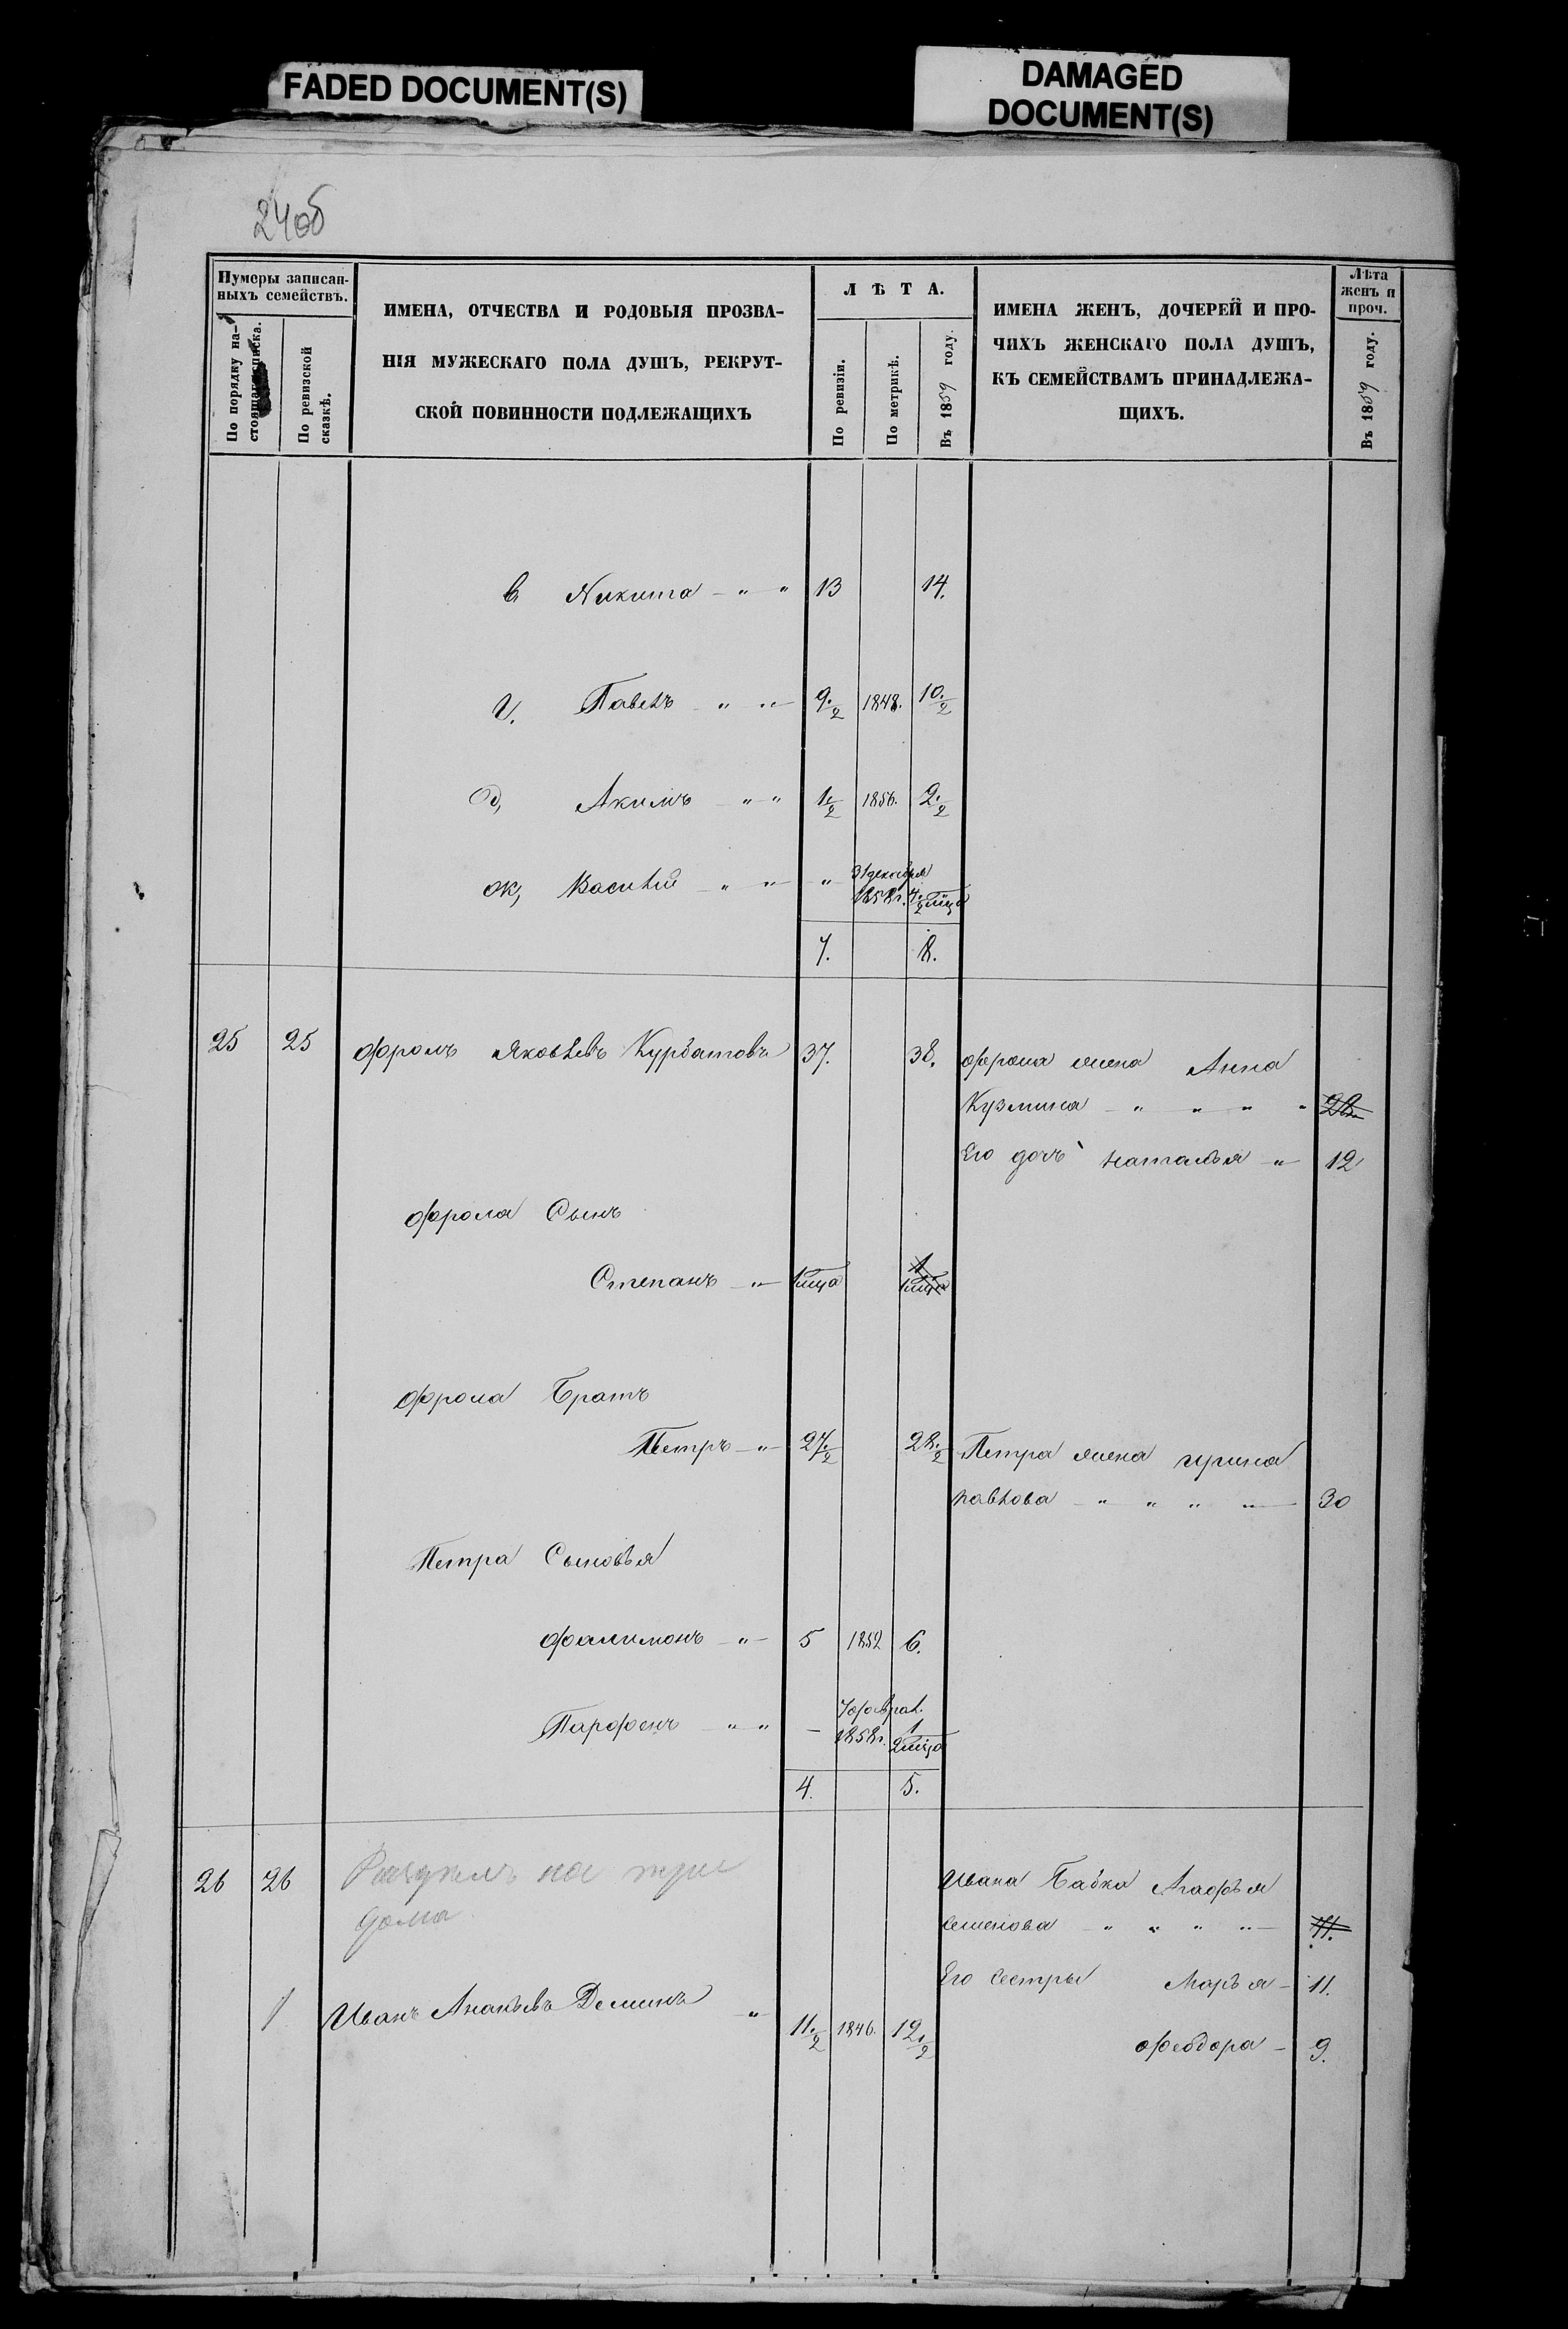 FADED DOCUMENT(S)
DAMAGED
DOCUMENT(S)
24об
Нумеры записан-
ныхъ семействъ.
По порядку на-
стоящаго списка.
По ревизской
сказкѣ.
ИМЕНА, ОТЧЕСТВА И РОДОВЫЯ ПРОЗВА-
НІЯ МУЖЕСКАГО ПОЛА ДУШЪ, РЕКРУТ-
СКОЙ ПОВИННОСТИ ПОДЛЕЖАЩИХЪ
ЛѢТА.
По ревизіи.
По метрикѣ.
Въ 1859 году.
ИМЕНА ЖЕНЪ, ДОЧЕРЕЙ И ПРО-
ЧИХЪ ЖЕНСКАГО ПОЛА ДУШЪ,
КЪ СЕМЕЙСТВАМЪ ПРИНАДЛЕЖА-
ЩИХЪ.
Лѣта
женъ и
проч.
Въ 1859 году.
в Никита - " " 13 14.
г. Павелъ " " 9.½ 1848. 10.½
д, Акимъ " " 1½ 1856. 2.½
ж, Василій - " " " 31 декабря
1858 г.
7. 8.
25 25 Фролъ Яковлевъ Курбатовъ 37. 38. Фрола жена Анна
Кузмина - " " " " 28
Его дочь Наталья " 12
Фрола Сынъ
Степанъ - " 1 мца 1 1 мца
Фрола Братъ
Петръ - " 27.½ 28.½ Петра жена Ирина
Павлова - " " " " 30
Петра Сыновья
Фалимонъ - " - 5 1852 6.
7 феврал.
Парфенъ - " " - 1858 г. 1 2 мца
4. 5.
26 26 Раздѣлъ на три
дома
Ивана Бабка Агафья
Семенова - " " " " 71.
Его сестры Марья - 11.
1 Иванъ Ананьевъ Деминъ " 11.½ 1846. 12.½
Феодора - 9.